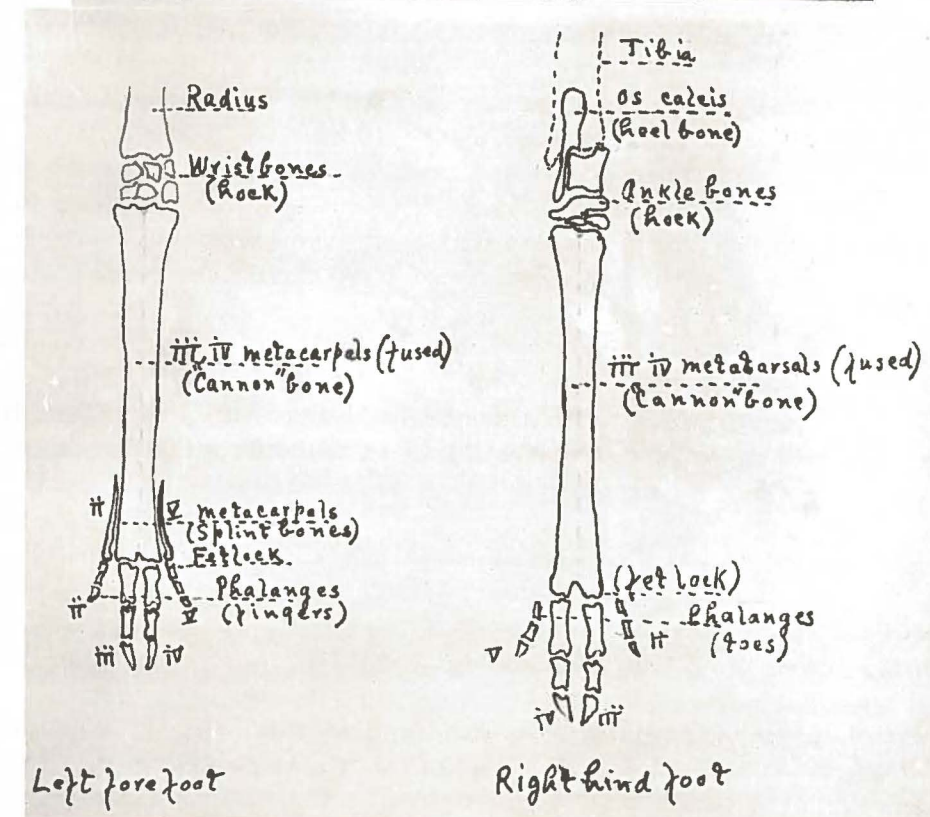 Radius
Wrist bones
(hock)
iii, iv metacarpals (fused)
("Cannon" bone)
ii
V metacarpals
(Splint bones)
Fetlock
Phalanges
(fingers)
ii
V
iii
iv
Left fore foot
Tibia
os calcis
(heel bone)
Ankle bones
(hock)
iii iv metatarsals (fused)
("Cannon" bone)
(fetlock)
Phalanges
(toes)
V
ii
iv
iii
Right hind foot